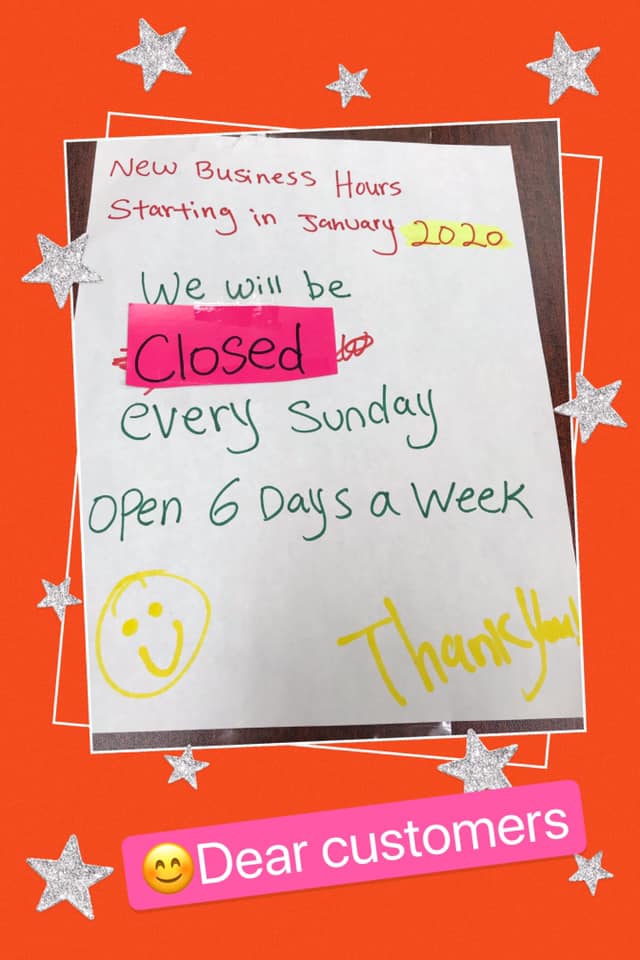 New Business Hours
Starting in January 2020
We will be
Closed
every Sunday
Open 6 Days a Week
Thank You!
😊Dear customers